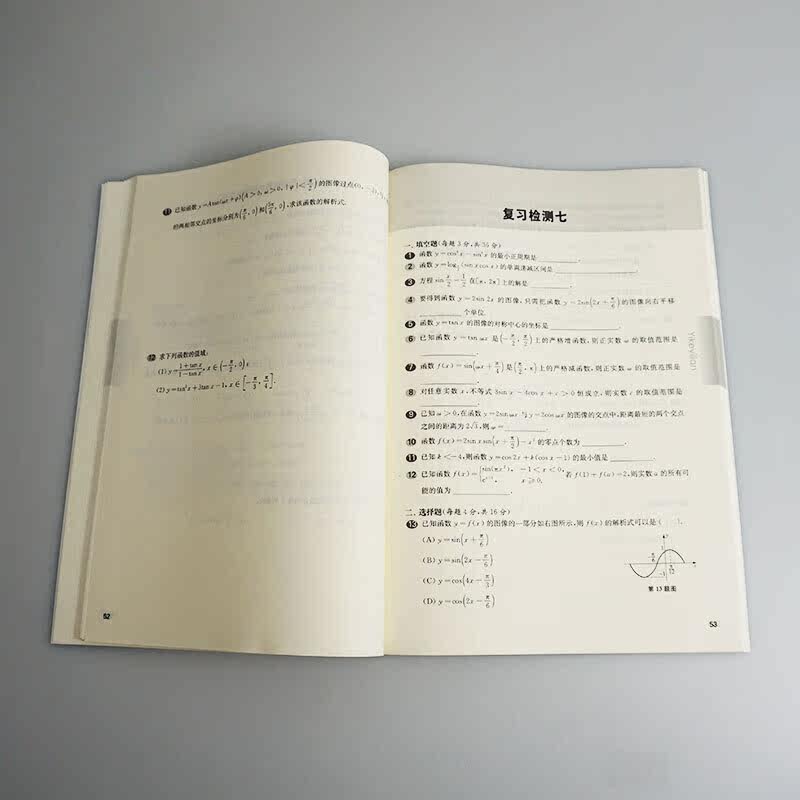 11 已知函数 y=Atan(ωx+φ)(A>0, ω>0, |φ|<π/2)的图像过点(0,
的两相邻交点的坐标分别为(π/6, 0)和(5π/6, 0),求该函数的解析式.
12 求下列函数的值域:
(1) y=(1+tan x)/(1-tan x), x∈(-π/2, 0);
(2) y=tan²x+3tan x-1, x∈[-π/3, π/4].
52
复习检测七
一、填空题(每题3分,共36分)
1 函数 y=cos⁴x-sin⁴x 的最小正周期是
2 函数 (sin x cos x) 的单调递减区间是
3 方程 sin x/2=1/2 在[π, 2π]上的解是
4 要得到函数 y=2sin 2x 的图像,只需把函数 y=2sin(2x+π/6)的图像向右平移
个单位.
5 函数 y=tan x 的图像的对称中心的坐标是
6 已知函数 y=tan ωx 是(-π/2, π/2)上的严格增函数,则正实数 ω 的取值范围是
7 函数 f(x)=sin(ωx+π/4)是(π/2, π)上的严格减函数,则正实数 ω 的取值范围是
8 对任意实数 x,不等式 3sin x-4cos x+c>0 恒成立,则实数 c 的取值范围是
9 已知 ω>0,在函数 y=2sin ωx 与 y=2cos ωx 的图像的交点中,距离最短的两个交点
之间的距离为 2√3,则 ω=
10 函数 f(x)=2sin x sin(x+π/2)-x² 的零点个数为
11 已知 k<-4,则函数 y=cos 2x+k(cos x-1) 的最小值是
12 已知函数 f(x)={sin(πx²), -1<x<0, x≥0. 若 f(1)+f(a)=2,则实数 a 的所有可
能的值为
二、选择题(每题4分,共16分)
13 已知函数 y=f(x) 的图像的一部分如右图所示,则 f(x) 的解析式可以是( ).
(A) y=sin(x+π/6)
(B) y=sin(2x-π/6)
(C) y=cos(4x-π/3)
(D) y=cos(2x-π/6)
第 13 题图
Yikeyilian
53